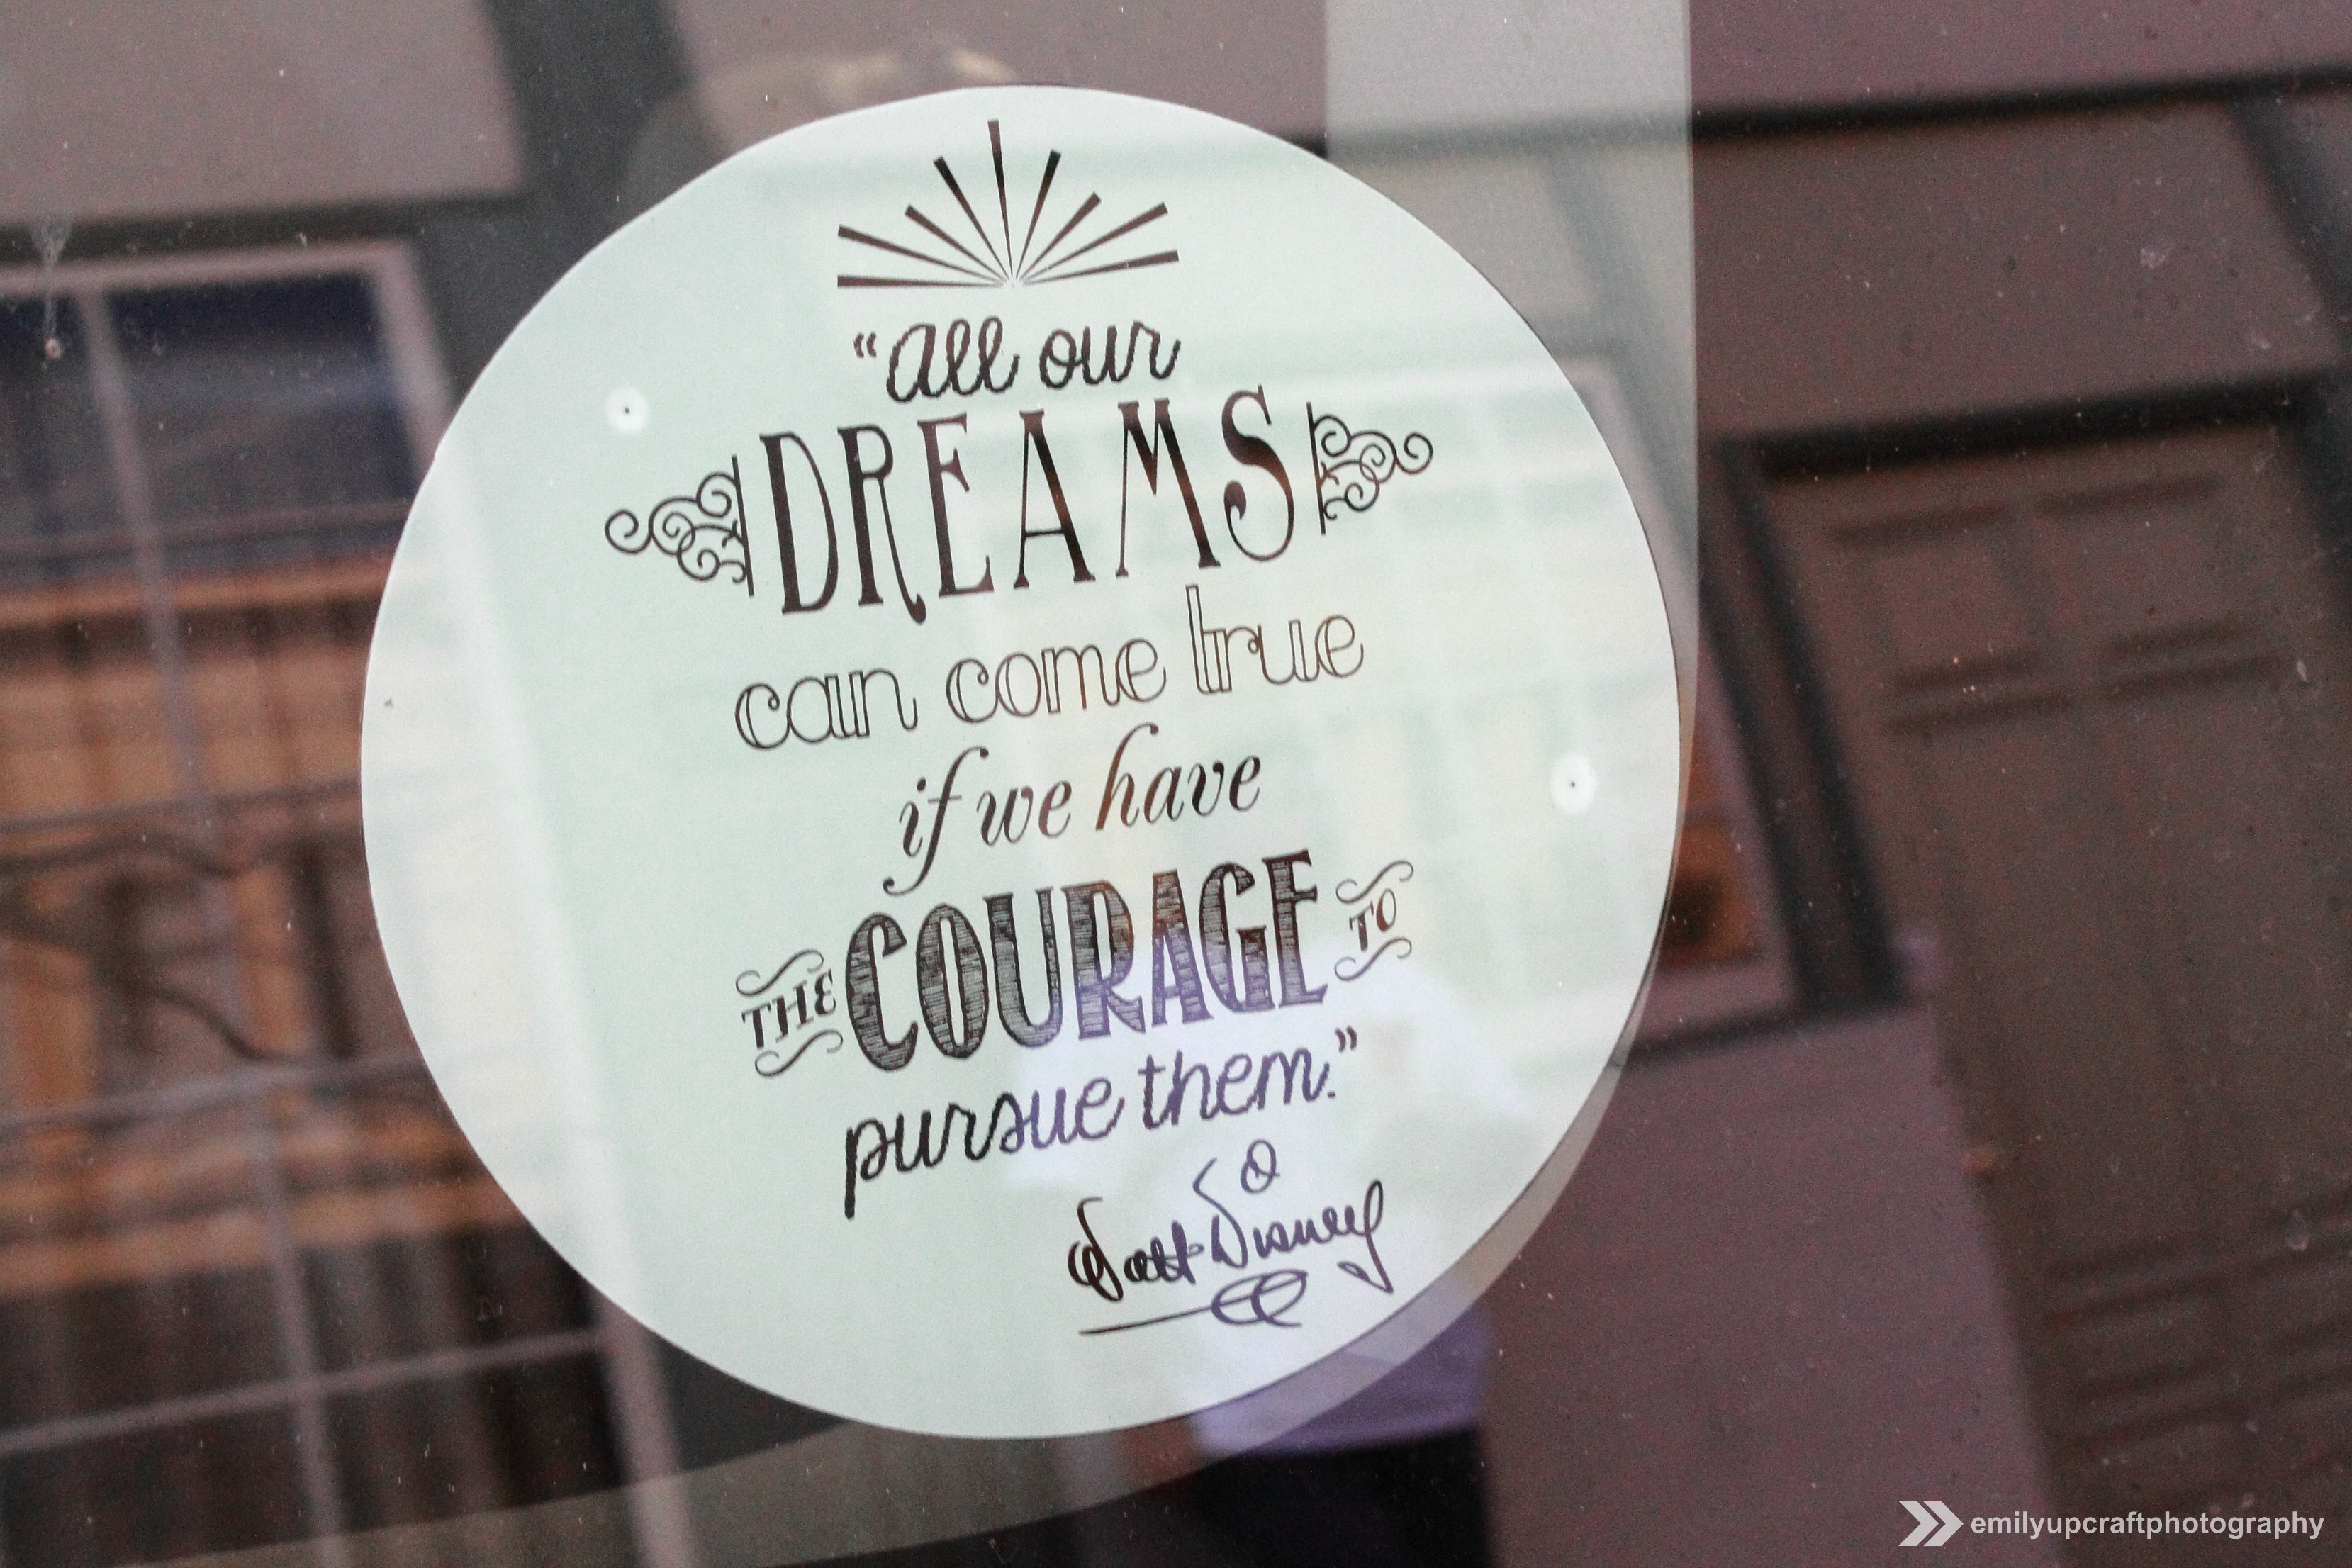 “all our
DREAMS
can come true
if we have
THE COURAGE TO
pursue them.”
Walt Disney
emilyupcraftphotography